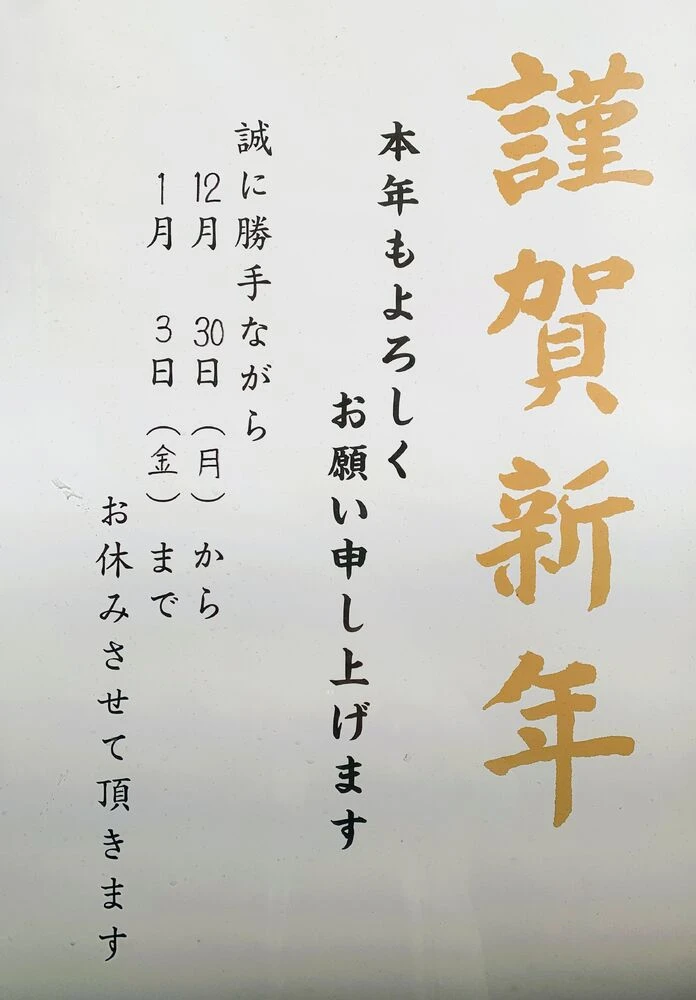 謹賀新年
本年もよろしく
お願い申し上げます
誠に勝手ながら
12月 30日（月）から
1月 3日（金）まで
お休みさせて頂きます